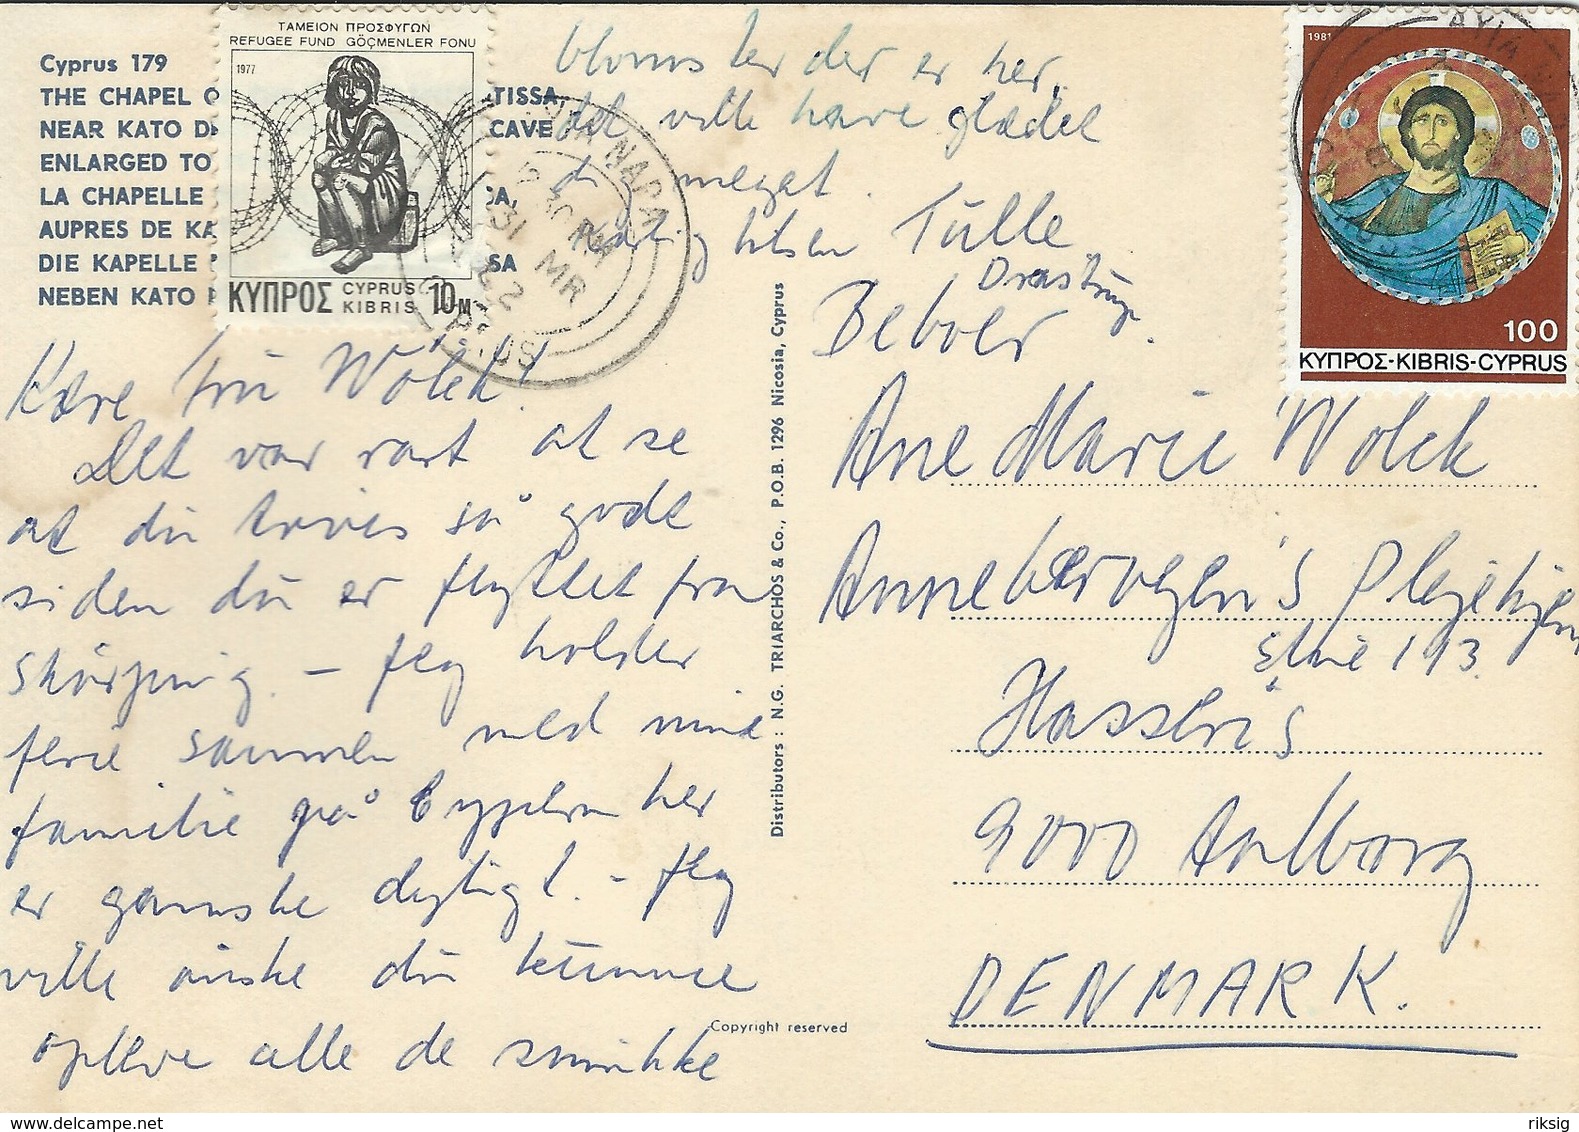 Cyprus 179
THE CHAPEL O TISSA
NEAR KATO D CAVE
ENLARGED TO
LA CHAPELLE SA,
AUPRES DE KA
DIE KAPELLE SA
NEBEN KATO
ΤΑΜΕΙΟΝ ΠΡΟΣΦΥΓΩΝ
REFUGEE FUND GÖÇMENLER FONU
1977
ΚΥΠΡΟΣ CYPRUS KIBRIS 10M
AYIA NAPA
PM
31 MR
CYPRUS
Kære fru Wolck!
Det var rart at se
at du trives så godt
siden du er flyttet fra
Skørping. – Jeg holder
ferie sammen med min
familie på Cypern her
er ganske dejligt. – Jeg
ville ønske du kunne
opleve alle de smukke
blomster der er her,
det ville have glædet
dig meget.
Kærlig hilsen Tulle
Drastrup.
Distributors : N.G. TRIARCHOS & Co., P.O.B. 1296 Nicosia, Cyprus
Copyright reserved
1981
100
ΚΥΠΡΟΣ-KIBRIS-CYPRUS
AYIA
Beboer
Ane Marie Wolck
Annebergvejen's Plejehjem
Stue 113.
Hasseris
9000 Aalborg
DENMARK.
delcampe.net
riksig